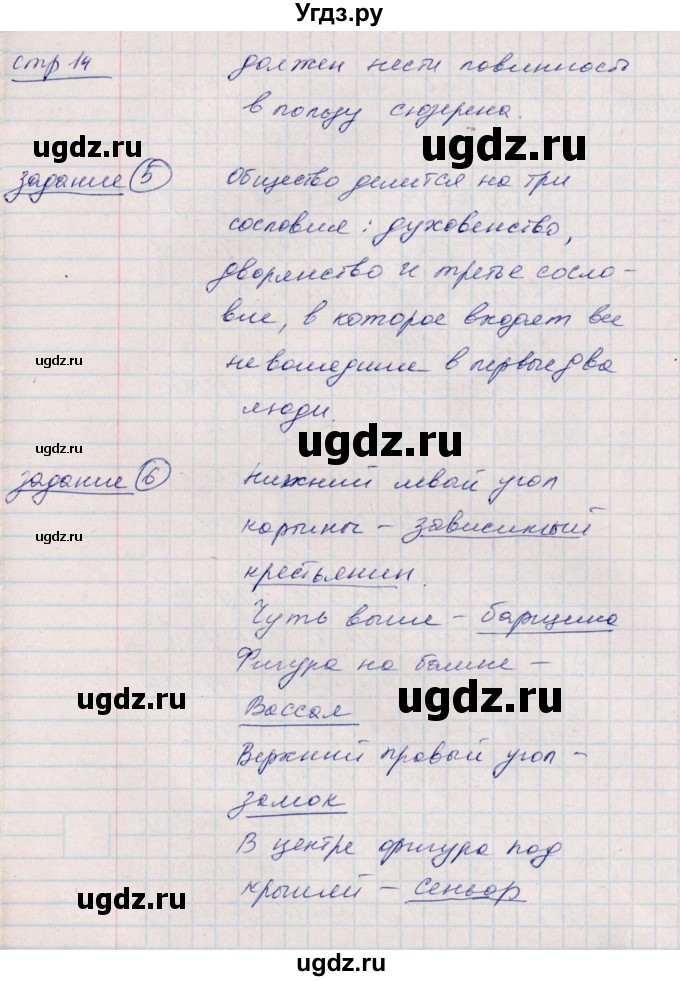 Угдз.ру
стр 14
должен нести повинность
в пользу сюзерена.
ugdz.ru
ugdz.ru
задание 5
Общество делится на три
сословия: духовенство,
дворянство и третье сосло-
вие, в которое входят все
ugdz.ru
не вошедшие в первые два
люди.
ugdz.ru
ugdz.ru
задание 6
Нижний левый угол
картины - зависимый
ugdz.ru
крестьянин.
Чуть выше - барщина
Фигура на башне -
ugdz.ru
ugdz.ru
Вассал
Верхний правый угол -
замок
В центре фигура под
крышей - Сеньор
ugdz.ru
ugdz.ru